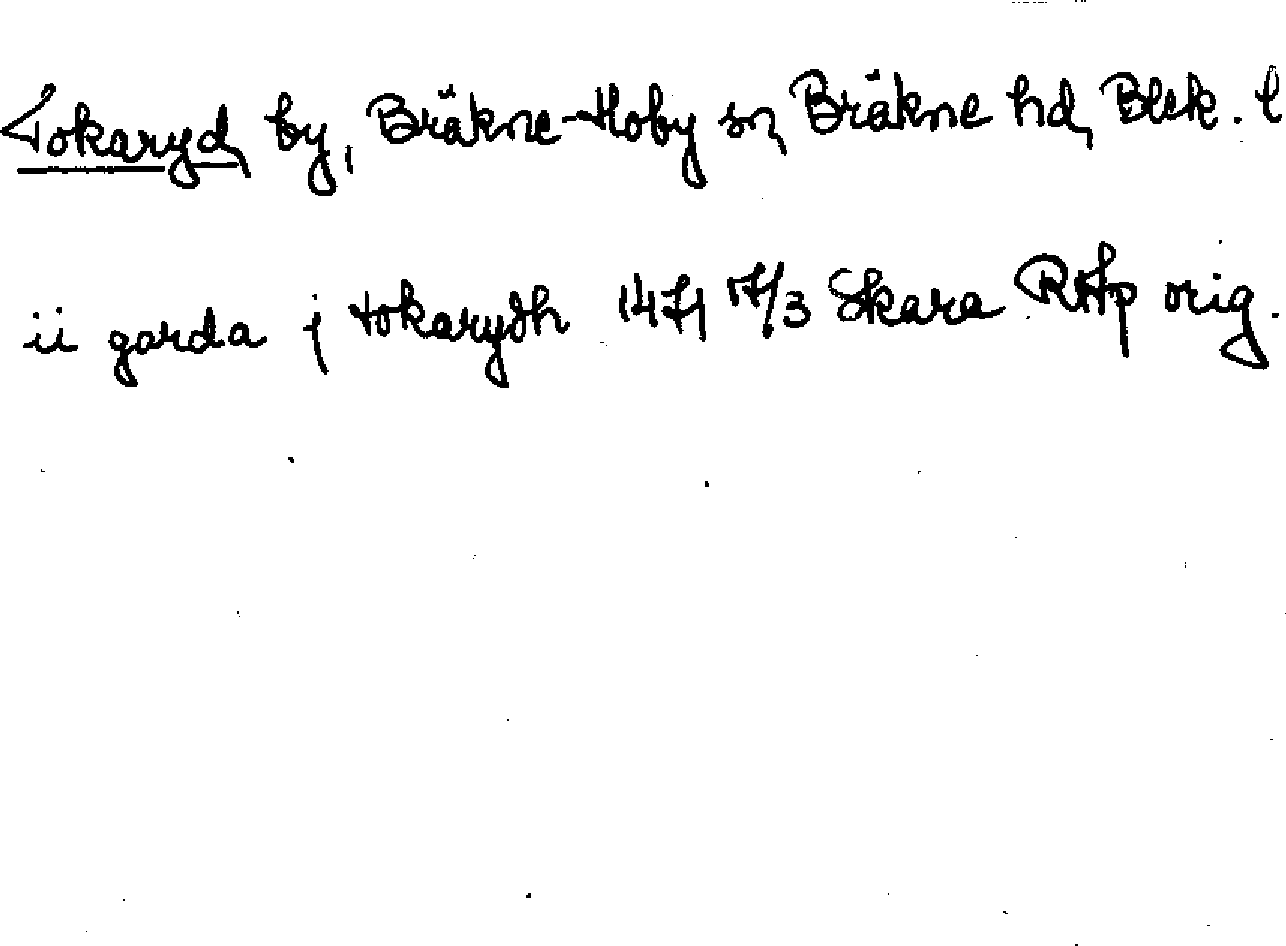 Tokaryd, by, Bräkne-Hoby sn, Bräkne hd, Blek. l
ii garda j tokarydh 1471 17/3 Skara RAp orig.